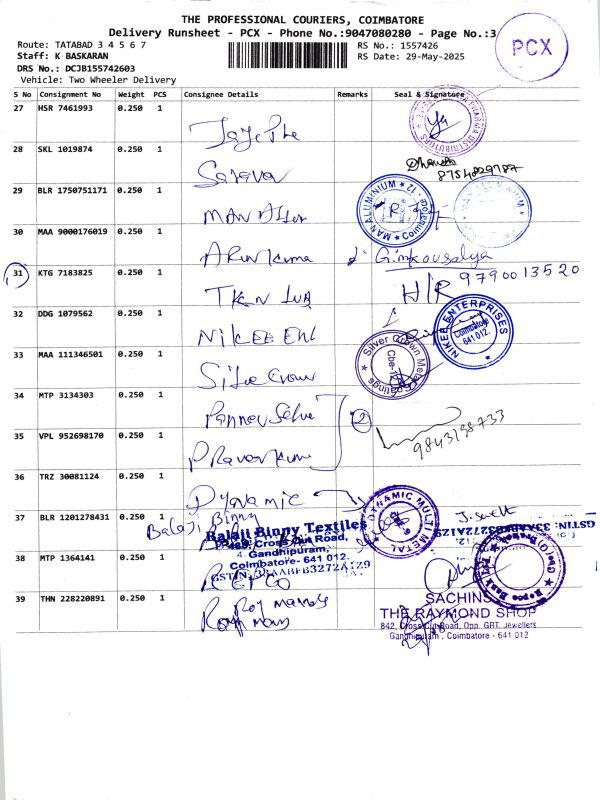 THE PROFESSIONAL COURIERS, COIMBATORE
Delivery Runsheet - PCX - Phone No.:9047080280 - Page No.:3
PCX
Route: TATABAD 3 4 5 6 7
RS No.: 1557426
Staff: K BASKARAN
RS Date: 29-May-2025
DRS No.: DCJB155742603
Vehicle: Two Wheeler Delivery
S No Consignment No Weight PCS Consignee Details Remarks Seal & Signature
27 HSR 7461993 0.250 1
28 SKL 1019874 0.250 1 Sarava
8754829787
29 BLR 1750751171 0.250 1
MAN ALUMINIUM Coimbatore - 12
30 MAA 9000176019 0.250 1 Arunkuma
Gimkousalya
31 KTG 7183825 0.250 1
H/R 9790013520
32 DDG 1079562 0.250 1 NiKEE ENt
NIKEE ENTERPRISES Coimbatore 641 012.
33 MAA 111346501 0.250 1 Silve Crown
Silver Crown Metal Coatings Cbe-12
34 MTP 3134303 0.250 1 Pannev Selve
2
35 VPL 952698170 0.250 1 Pravenkumr
9843198733
36 TRZ 30081124 0.250 1 Dynamic
DYNAMIC MULTI METAL
37 BLR 1201278431 0.250 1 Balaji Binny
Balaji Binny Textiles
Cross Cut Road,
Gandhipuram,
Coimbatore- 641 012.
GSTIN: 33AABFB3272A1Z9
38 MTP 1364141 0.250 1 REPCO
Repco Bank
39 THN 228220891 0.250 1 Raymans
SACHINS
THE RAYMOND SHOP
842, Cross Cut Road, Opp. GRT. Jewellers
Gandhipuram, Coimbatore - 641 012